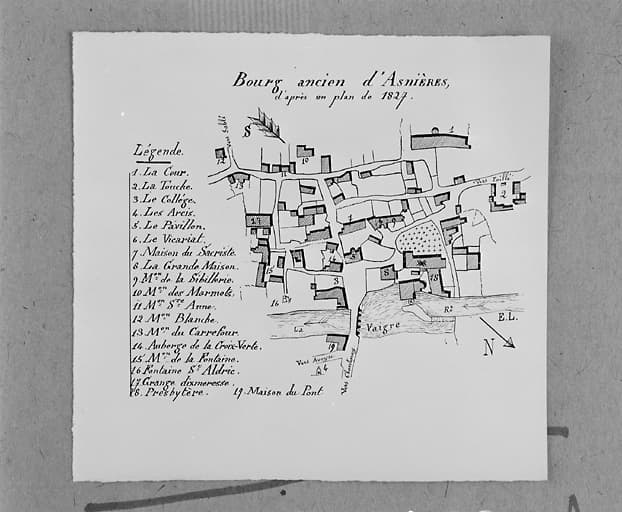 Bourg ancien d'Asnières,
d'après un plan de 1827.
Légende.
1. La Cour.
2. La Touche.
3. Le Collège.
4. Les Arcis.
5. Le Pavillon.
6. Le Vicariat.
7 Maison du Sacriste.
8. La Grande Maison.
9 Mon de la Sibillerie.
10 Mon des Marmots.
11 Mon Ste Anne.
12 Mon Blanche.
13 Mon du Carrefour.
14. Auberge de la Croix-Verte.
15. Mon de la Fontaine.
16 Fontaine St Aldric.
17 Grange dixmeresse.
18. Presbytère.
19. Maison du Pont
S
Vers Sablé
12
13
11
10
1
Vers Poillé
2
15
16
8
18
La
Vaigre
Rt
E.L.
N
19
Vers
Vers